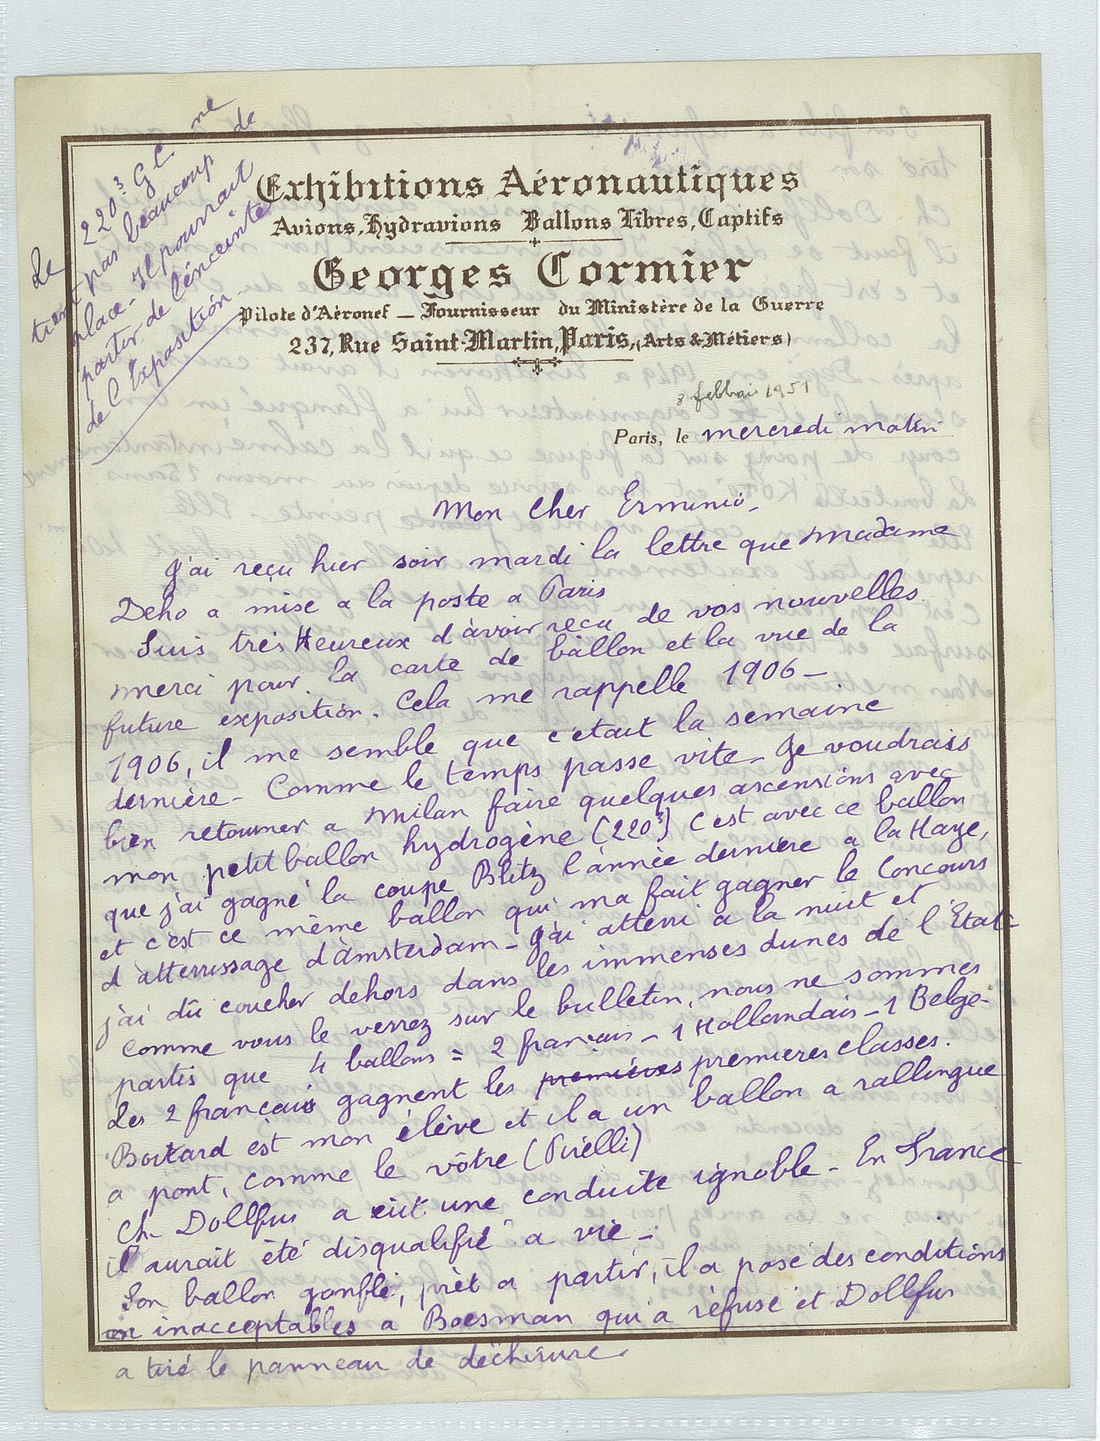 Le 220³ GC ne
tient pas beaucoup de
place - Il pourrait
partir de l'énceinte
de l'Exposition
Exhibitions Aéronautiques
Avions, Hydravions Ballons Libres, Captifs
Georges Cormier
Pilote d'Aéronef — Fournisseur du Ministère de la Guerre
237, Rue Saint-Martin, Paris, (Arts & Métiers)
3 febbraio 1951
Paris, le mercredi matin
Mon Cher Erminio -
J'ai reçu hier soir mardi la lettre que Madame
Deho a mise a la poste a Paris
Suis très Heureux d'avoir reçu de vos nouvelles
merci pour la carte de ballon et la vue de la
future exposition. Cela me rappelle 1906 -
1906, il me semble que c'était la semaine
dernière - Comme le temps passe vite - Je voudrais
bien retourner a Milan faire quelques ascensions avec
mon petit ballon hydrogène (220³) c'est avec ce ballon
que j'ai gagné la coupe Blitz l'année dernière a la Haye,
et c'est ce même ballon qui ma fait gagner le Concours
d'atterrissage d'Amsterdam - J'ai atterri a la nuit et
j'ai dû coucher dehors dans les immenses dunes de l'Etat -
Comme vous le verrez sur le bulletin, nous ne sommes
partis que 4 ballons = 2 français - 1 Hollandais - 1 Belge -
Les 2 français gagnent les premières premieres classes.
Boitard est mon élève et il a un ballon a rallingue
a pont, comme le vôtre (Pirelli)
Ch. Dollfus a eut une conduite ignoble - En France
il aurait été disqualifié a vie -
Son ballon gonflé, prèt a partir, il a posé des conditions
inacceptables a Boesman qui a réfusé et Dollfus
a tiré le panneau de déchirure -